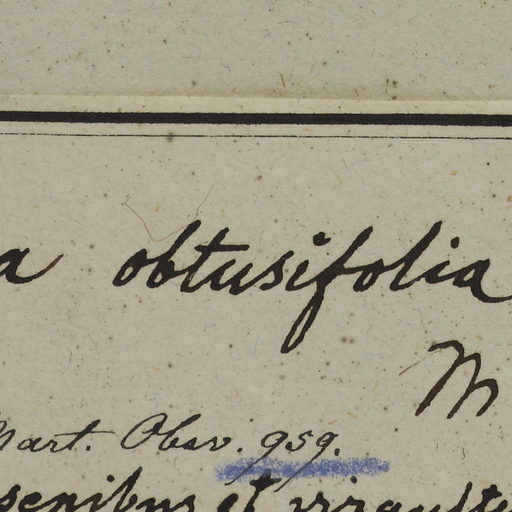 a obtusifolia
M
Mart. Obsv. 959.
sepibus et virgultis